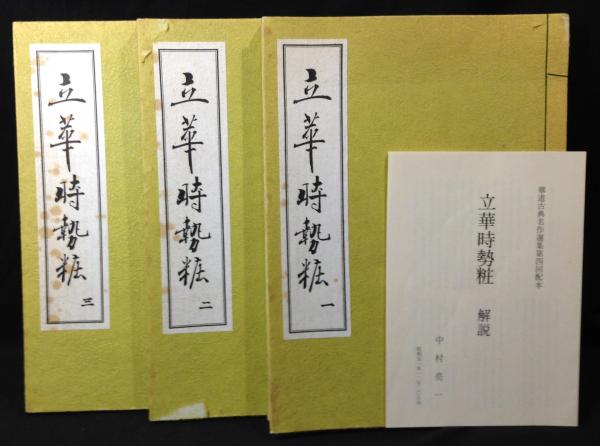 立華時勢粧 一
立華時勢粧 二
立華時勢粧 三
華道古典名作選集第四回配本
立華時勢粧 解説
中村亮一